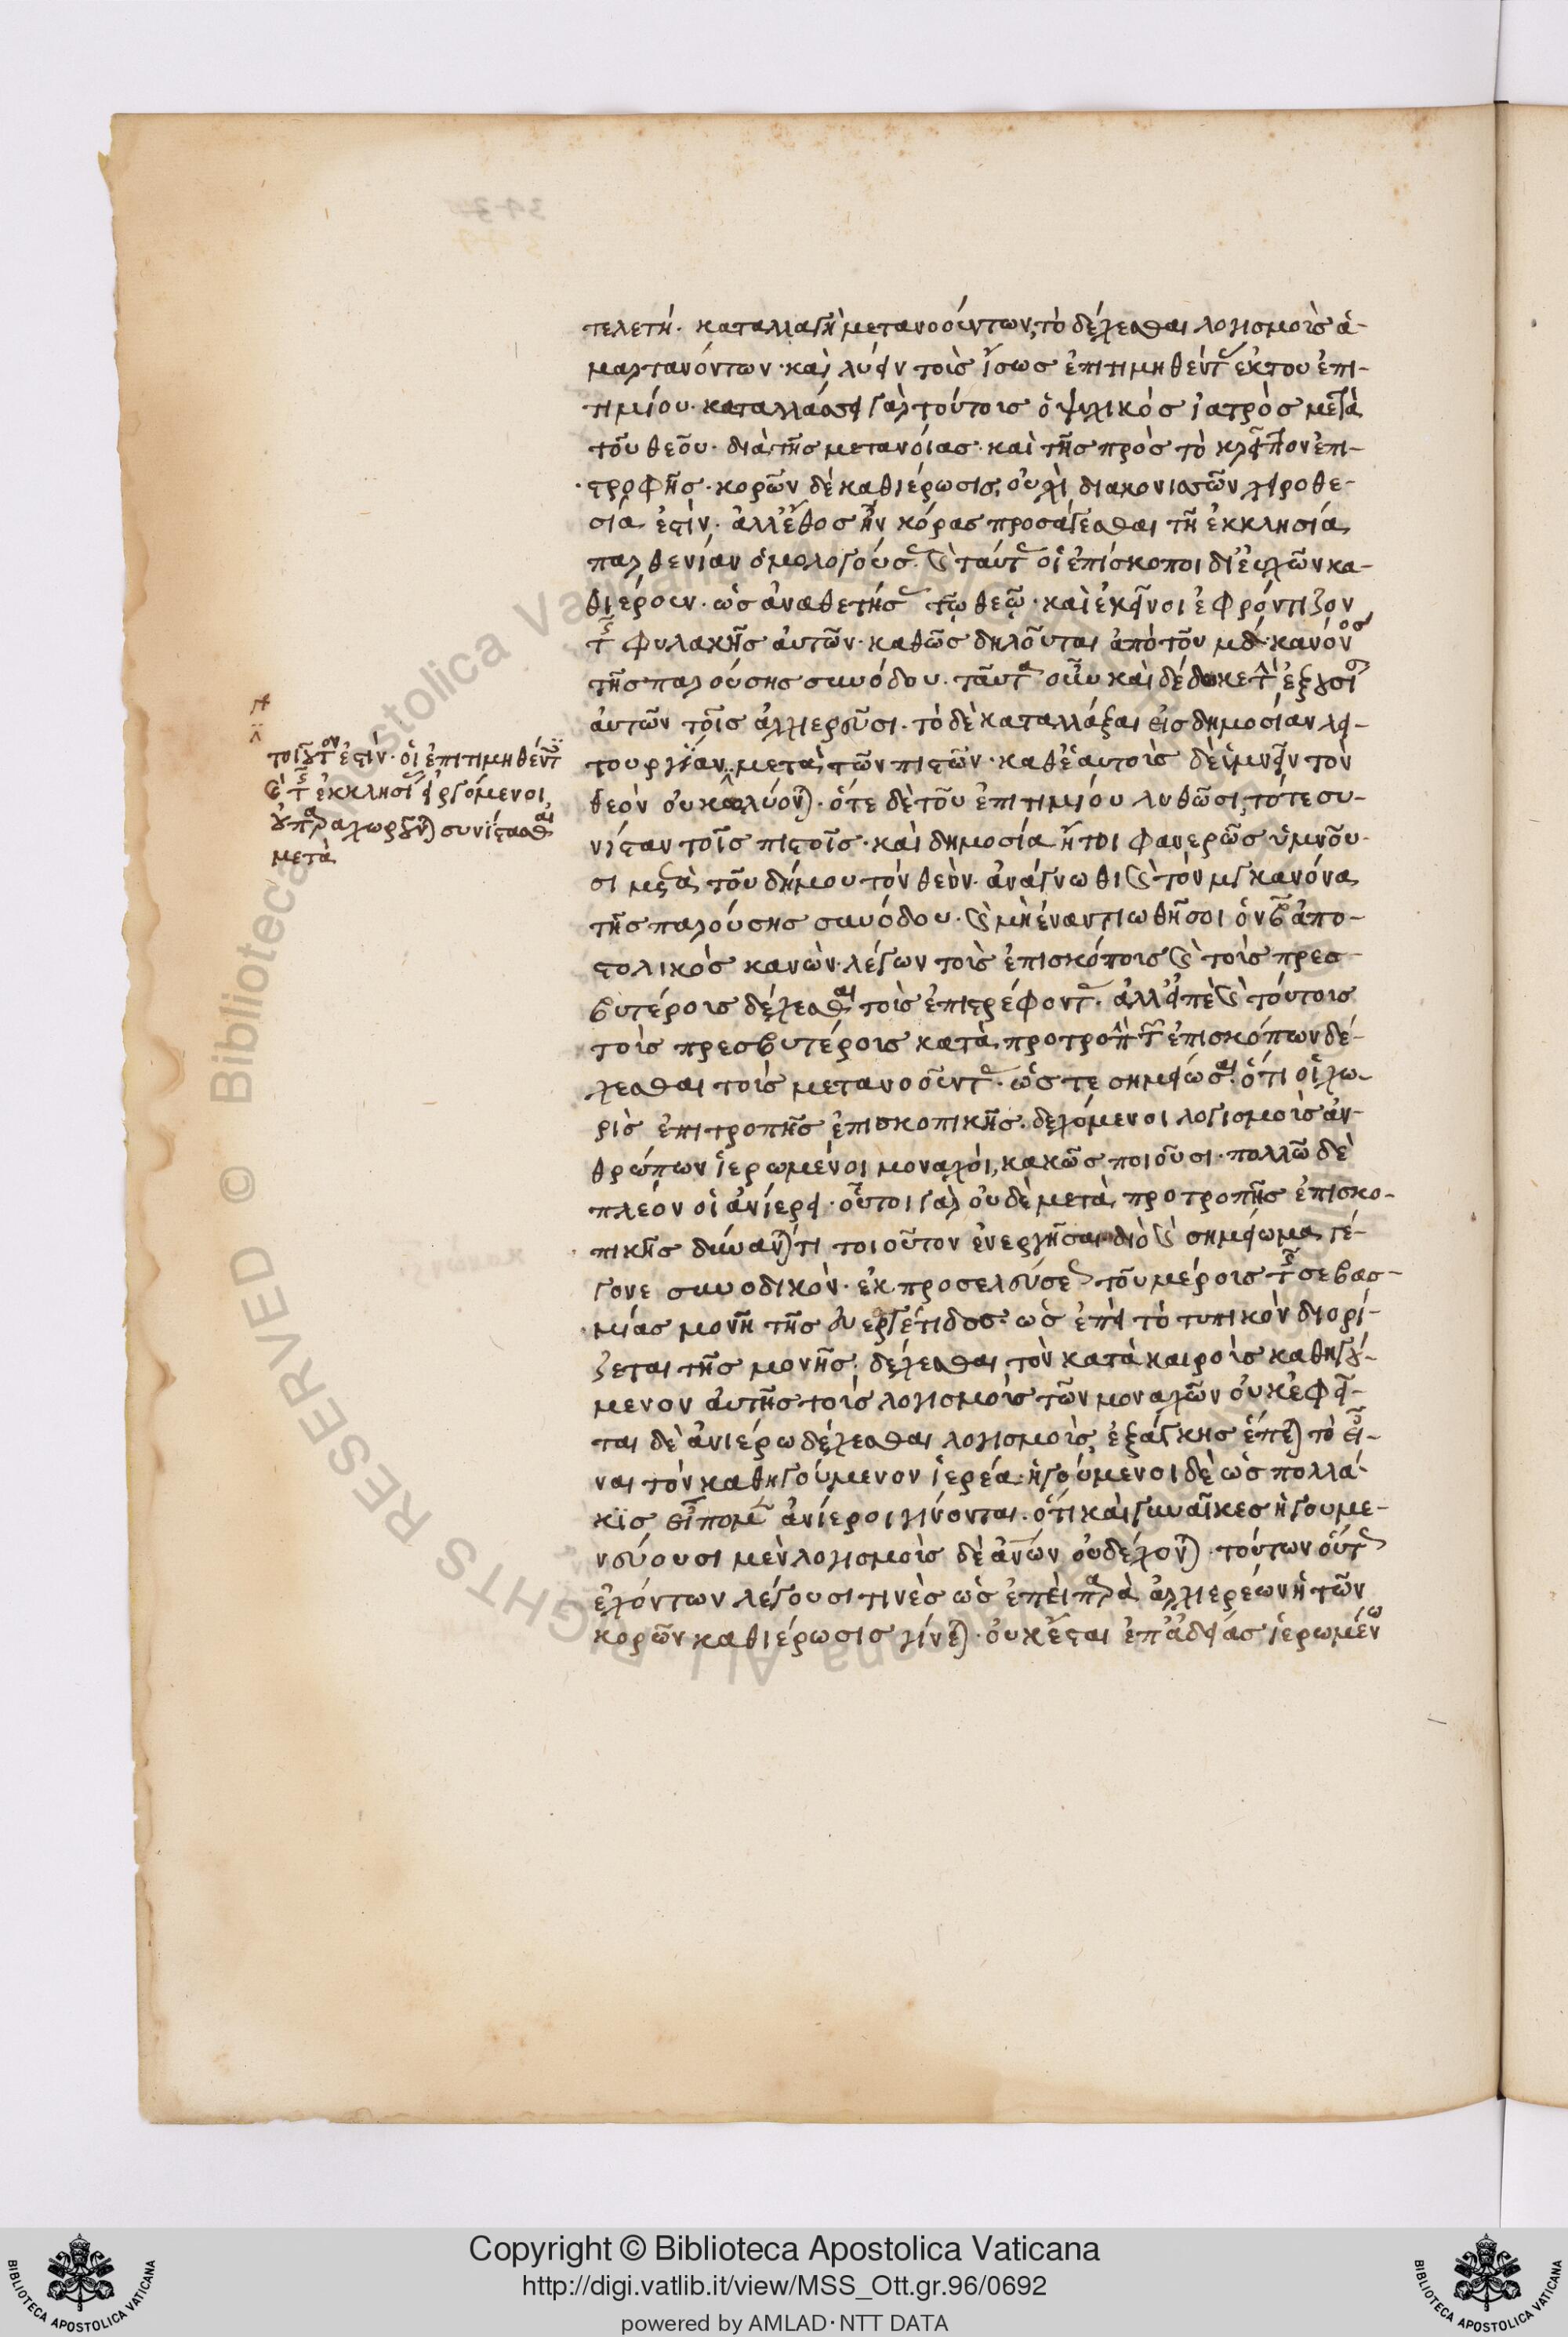 τελετή. καταλλαγὴ μετανοούντων, τὸ δέχεσθαι λογισμοὺς ἁ-
μαρτανόντων· καὶ λύειν τοὺς ἴσως ἐπιτιμηθέντας ἐκ τοῦ ἐπι-
τιμίου. καταλλάσσει γὰρ τούτους ὁ ψυχικὸς ἰατρὸς μετὰ
τοῦ θεοῦ· διὰ τῆς μετανοίας· καὶ τῆς πρὸς τὸ κρεῖττον ἐπι-
στροφῆς. κορῶν δὲ καθιέρωσις, οὐχὶ διακονισσῶν χειροθε-
σία ἐστίν. ἀλλ' ἔθος ἦν κόρας προσάγεσθαι τῆ ἐκκλησία
παρθενίαν ὁμολογούσας· καὶ ταύτας οἱ ἐπίσκοποι δι' εὐχῶν κα-
θιέρουν· ὡς ἀναθετὴς τῶ θεῶ· καὶ ἐκεῖνοι ἐφρόντιζον
τῆς φυλακῆς αὐτῶν· καθὼς δηλοῦται ἀπὸ τοῦ μδ κανόνος
τῆς παρούσης συνόδου. ταῦτα οὖν καὶ δέδοκε
αὐτῶν τοῖς ἀρχιερεῦσι. τὸ δὲ καταλλάξαι εἰς δημοσίαν λει-
τουργίαν μετὰ τῶν πιστῶν· καθ' ἑαυτοὺς δὲ ὑμνεῖν τὸν
θεὸν οὐ κωλύονται. ὅτε δὲ τοῦ ἐπιτιμίου λυθῶσι, τότε συ-
νίσταν τοῖς πιστοῖς· καὶ δημοσία ἤτοι φανερῶς ὑμνοῦ-
σι μετὰ τοῦ δήμου τὸν θεόν. ἀνάγνωθι καὶ τὸν μγ κανόνα
τῆς παρούσης συνόδου. καὶ μὴ ἐναντιωθῆ σοι ὁ νβ ἀπο-
στολικὸς κανὼν λέγων τοὺς ἐπισκόπους καὶ τοὺς πρεσ-
βυτέρους δέχεσθαι τοὺς ἐπιστρέφοντας. ἀλλ' εἰπὲ καὶ τούτους
τοὺς πρεσβυτέρους κατὰ προτροπὴν τῶν ἐπισκόπων δέ-
χεσθαι τοὺς μετανοοῦντας. ὥστε σημείωσαι ὅτι οἱ χω-
ρὶς ἐπιτροπῆς ἐπισκοπικῆς δεχόμενοι λογισμοὺς ἀν-
θρώπων ἱερωμένοι μοναχοὶ, κακῶς ποιοῦσι. πολλῶ δὲ
πλέον οἱ ἀνίεροι· οὗτοι γὰρ οὐδὲ μετὰ προτροπῆς ἐπισκο-
πικῆς δύνανταί τι τοιοῦτον ἐνεργῆσαι διὸ καὶ σημείωμα γέ-
γονε συνοδικὸν· ἐκ προσελεύσεως τοῦ μέρους τῆς σεβασ-
μίας μονῆς τῆς εὐεργέτιδος· ὡς ἐπεὶ τὸ τυπικὸν διορί-
ζεται τῆς μονῆς· δέχεσθαι τὸν κατὰ καιροὺς καθηγού-
μενον αὐτῆς τοὺς λογισμοὺς τῶν μοναχῶν οὐκ ἐφεῖ-
ται δὲ ἀνιέρω δέχεσθαι λογισμοὺς, ἐξ ἀνάγκης ἕπεται τὸ εἶ-
ναι τὸν καθηγούμενον ἱερέα. ἡγούμενοι δὲ ὡς πολλά-
κις εἴπομεν ἀνίεροι γίνονται. ὅτι καὶ γυναῖκες ἡγουμε-
νεύουσι μὲν λογισμοὺς δὲ ἀνων οὐ δέχονται. τούτων οὕτως
ἐχόντων λέγουσι τινὲς ὡς ἐπεὶ παρὰ ἀρχιερέων ἡ τῶν
κορῶν καθιέρωσις γίνεται. οὐκ ἔσται ἐπ' ἀδείας ἱερωμένω
τοιοῦτον ἐστίν. οἱ ἐπιτιμηθέντες
καὶ τῆς ἐκκλησίας εἰργόμενοι
οὐ παραχωροῦνται συνίστασθαι
μετὰ
Copyright © Biblioteca Apostolica Vaticana
http://digi.vatlib.it/view/MSS_Ott.gr.96/0692
powered by AMLAD·NTT DATA